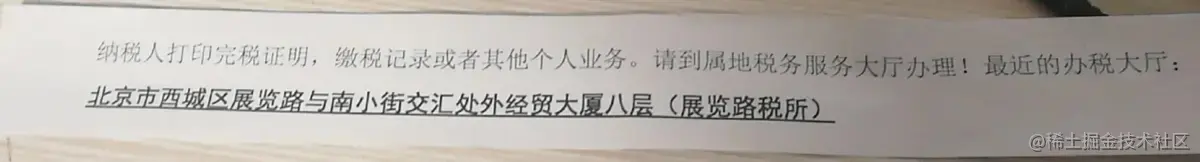 纳税人打印完税证明，缴税记录或者其他个人业务。请到属地税务服务大厅办理！最近的办税大厅：
北京市西城区展览路与南小街交汇处外经贸大厦八层（展览路税所）
@稀土掘金技术社区